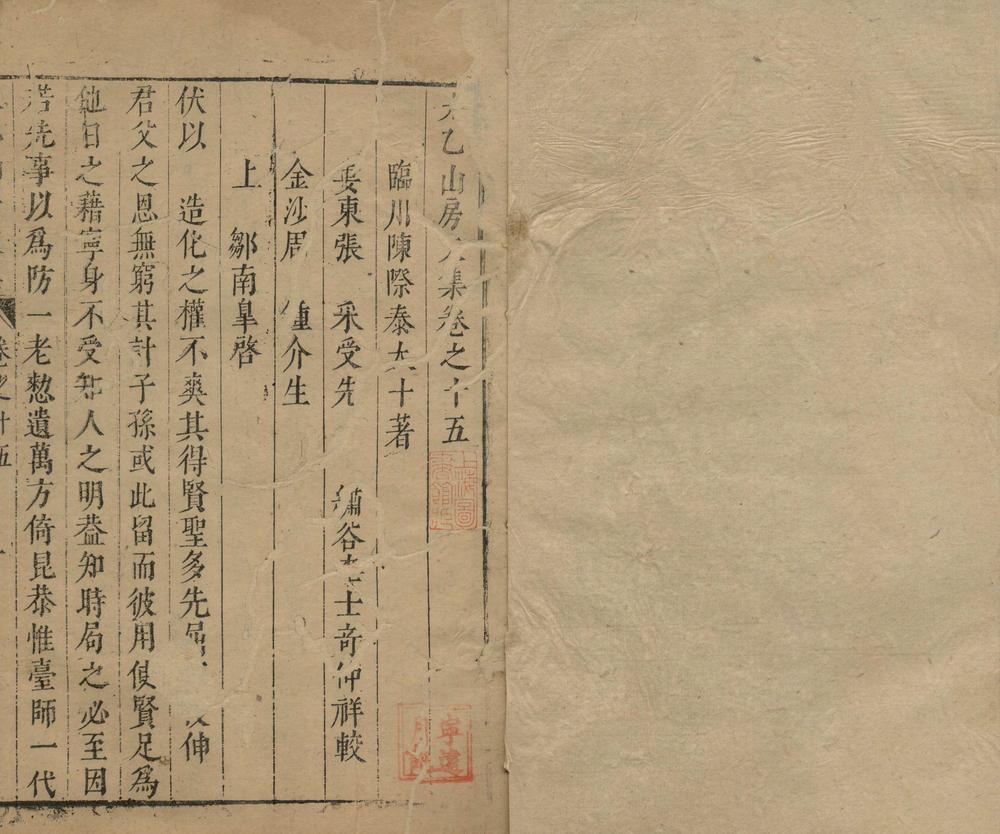 太乙山房文集卷之十五
臨川陳際泰大士著
婁東張 采受先
繡谷李士奇仲祥較
金沙周 鍾介生
上 鄒南臯啓
伏以 造化之權不爽其得賢聖多先 伸
君父之恩無窮其計子孫或此留而彼用復賢足爲
他日之藉寧身不受知人之明葢知時局之必至因
若先事以爲防一老憗遺萬方倚昆恭惟臺師一代
卷之十五
上海圖書館藏